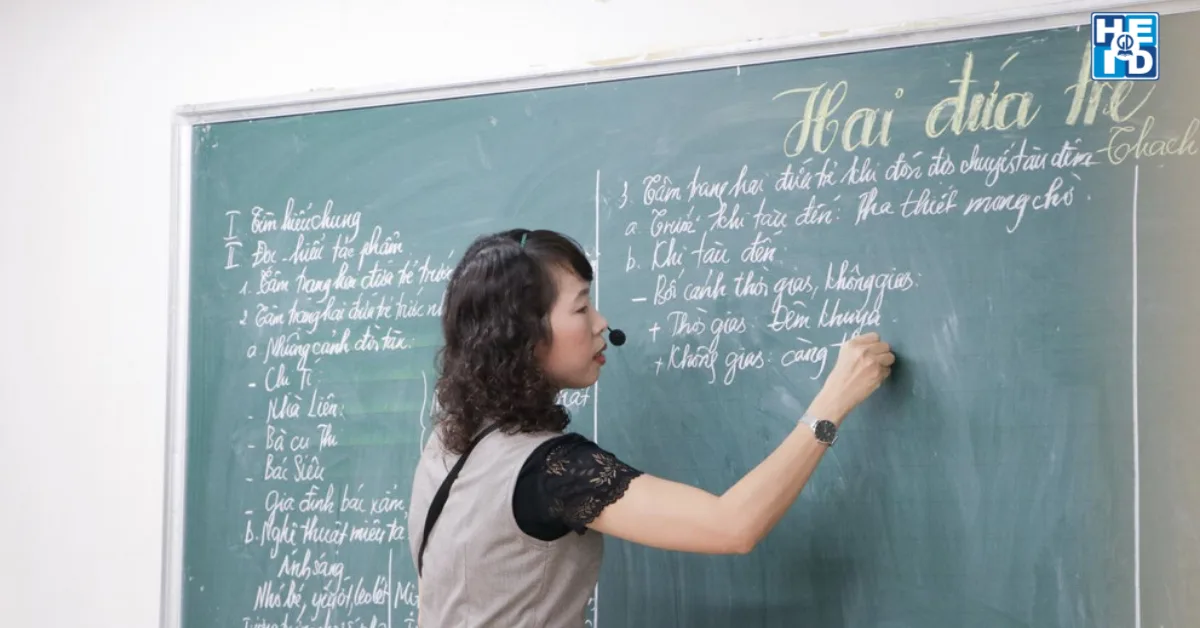 HEID
Hai đứa trẻ
Thạch
I Tìm hiểu chung
II Đọc - hiểu tác phẩm
1. Tâm trạng hai đứa trẻ trước
2 Tâm trạng hai đứa trẻ trước
a Những cảnh đời tàn:
- Chị Tí
- Nhà Liên:
- Bà cụ Thi
- Bác Siêu
- Gia đình bác xẩm,
b. Nghệ thuật miêu tả
Ánh sáng
Nhỏ bé, yếu ớt, leo lét
3. Tâm trạng hai đứa trẻ khi đón đợi chuyến tàu đêm
a. Trước khi tàu đến: Tha thiết mong chờ.
b. Khi tàu đến
- Bối cảnh thời gian, không gian:
+ Thời gian: Đêm khuya
+ Không gian: càng